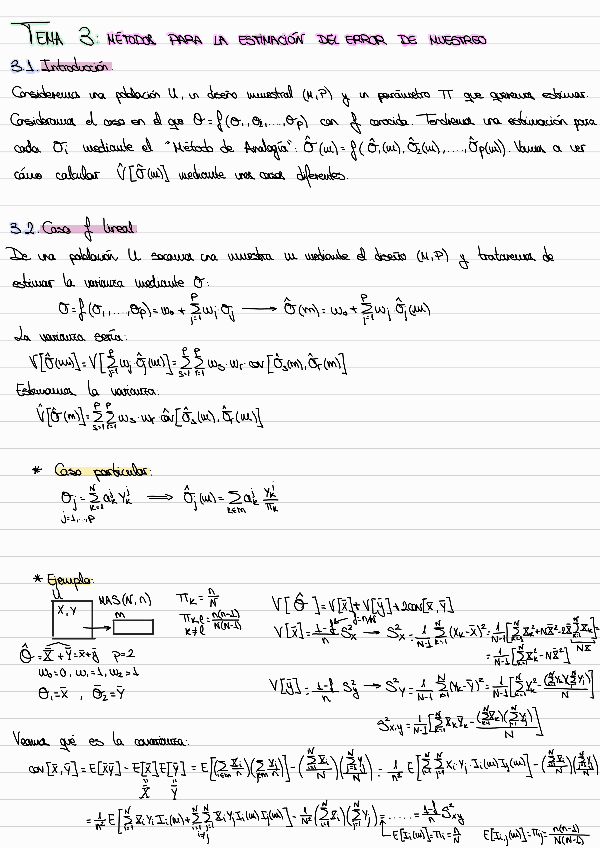 TEMA 3: MÉTODOS PARA LA ESTIMACIÓN DEL ERROR DE MUESTREO
3.1. Introducción
Consideremos una población U, un diseño muestral (M,P) y un parámetro π que queremos estimar.
Consideramos el caso en el que θ=f(θ₁,θ₂,...,θp) con f conocida. Tendremos una estimación para
cada θi mediante el "Método de Analogía": θ̂(m)=f(θ̂₁(m),θ̂₂(m),....,θ̂p(m)). Vamos a ver
cómo calcular V̂[θ̂(m)] mediante unos casos diferentes.
3.2. Caso f lineal
De una población U sacamos una muestra m mediante el diseño (M,P) y trataremos de
estimar la varianza mediante θ:
θ=f(θ₁,...,θp)=w₀+∑_{j=1}^{p} wj θj ⟶ θ̂(m)=w₀+∑_{j=1}^{p} wj θ̂j(m)
La varianza sería:
V[θ̂(m)]=V[∑_{j=1}^{p} wj·θ̂j(m)]=∑_{s=1}^{p}∑_{r=1}^{p} ws·wr·cov[θ̂s(m),θ̂r(m)]
Estimamos la varianza:
V̂[θ̂(m)]=∑_{s=1}^{p}∑_{r=1}^{p} ws·wr·côv[θ̂s(m),θ̂r(m)]
* Caso particular:
θj=∑_{k=1}^{N} a_k^j Y_k^j ⟹ θ̂j(m)=∑_{k∈m} a_k^j Y_k^j/πk
j=1,...,p
* Ejemplo:
U MAS(N,n) πk=n/N
X,Y m πk,l=n(n-1)/N(N-1)
k≠l
θ̂=X̄+Ȳ=x̄+ȳ p=2
w₀=0, w₁=1, w₂=1
θ₁=X̄, θ₂=Ȳ
V[θ̂]=V[x̄]+V[ȳ]+2cov[x̄,ȳ]
V[x̄]=(1-f)/n S²x → S²x=1/(N-1) ∑_{k=1}^{N}(Xk-X̄)²=1/(N-1)[∑_{k=1}^{N}X²k+NX̄²-2X̄∑_{k=1}^{N}Xk]
f=n/N NX̄
=1/(N-1)[∑_{k=1}^{N}X²k-NX̄²]
V[ȳ]=(1-f)/n S²y → S²y=1/(N-1) ∑_{k=1}^{N}(Yk-Ȳ)²=1/(N-1)[∑_{k=1}^{N}Y²k-(∑Yk)(∑Yj)/N]
S²x,y=1/(N-1)[∑_{k=1}^{N}XkYk-(∑Xi)(∑Yj)/N]
Veamos qué es la covarianza:
cov[x̄,ȳ]=E[x̄ȳ]-E[x̄]E[ȳ]=E[(∑_{i∈m} Xi/n)(∑_{j∈m} Yj/n)]-(∑_{i=1}^{N} Xi/N)(∑_{j=1}^{N} Yj/N)=1/n² E[∑_{i=1}^{N}∑_{j=1}^{N} Xi·Yj Ii(m)Ij(m)]-(∑_{i=1}^{N} Xi/N)(∑_{j=1}^{N} Yj/N)
X̄ Ȳ
=1/n² E[∑_{i=1}^{N} XiYi Ii(m)+∑_{i=1}^{N}∑_{j=1}^{N} XiYj Ii(m)Ij(m)]-1/N²(∑_{i=1}^{N} Xi)(∑_{j=1}^{N} Yj)=......=(1-f)/n S²xy
i≠j
E[Ii(m)]=πi=n/N E[Ii,j(m)]=πij=n(n-1)/N(N-1)